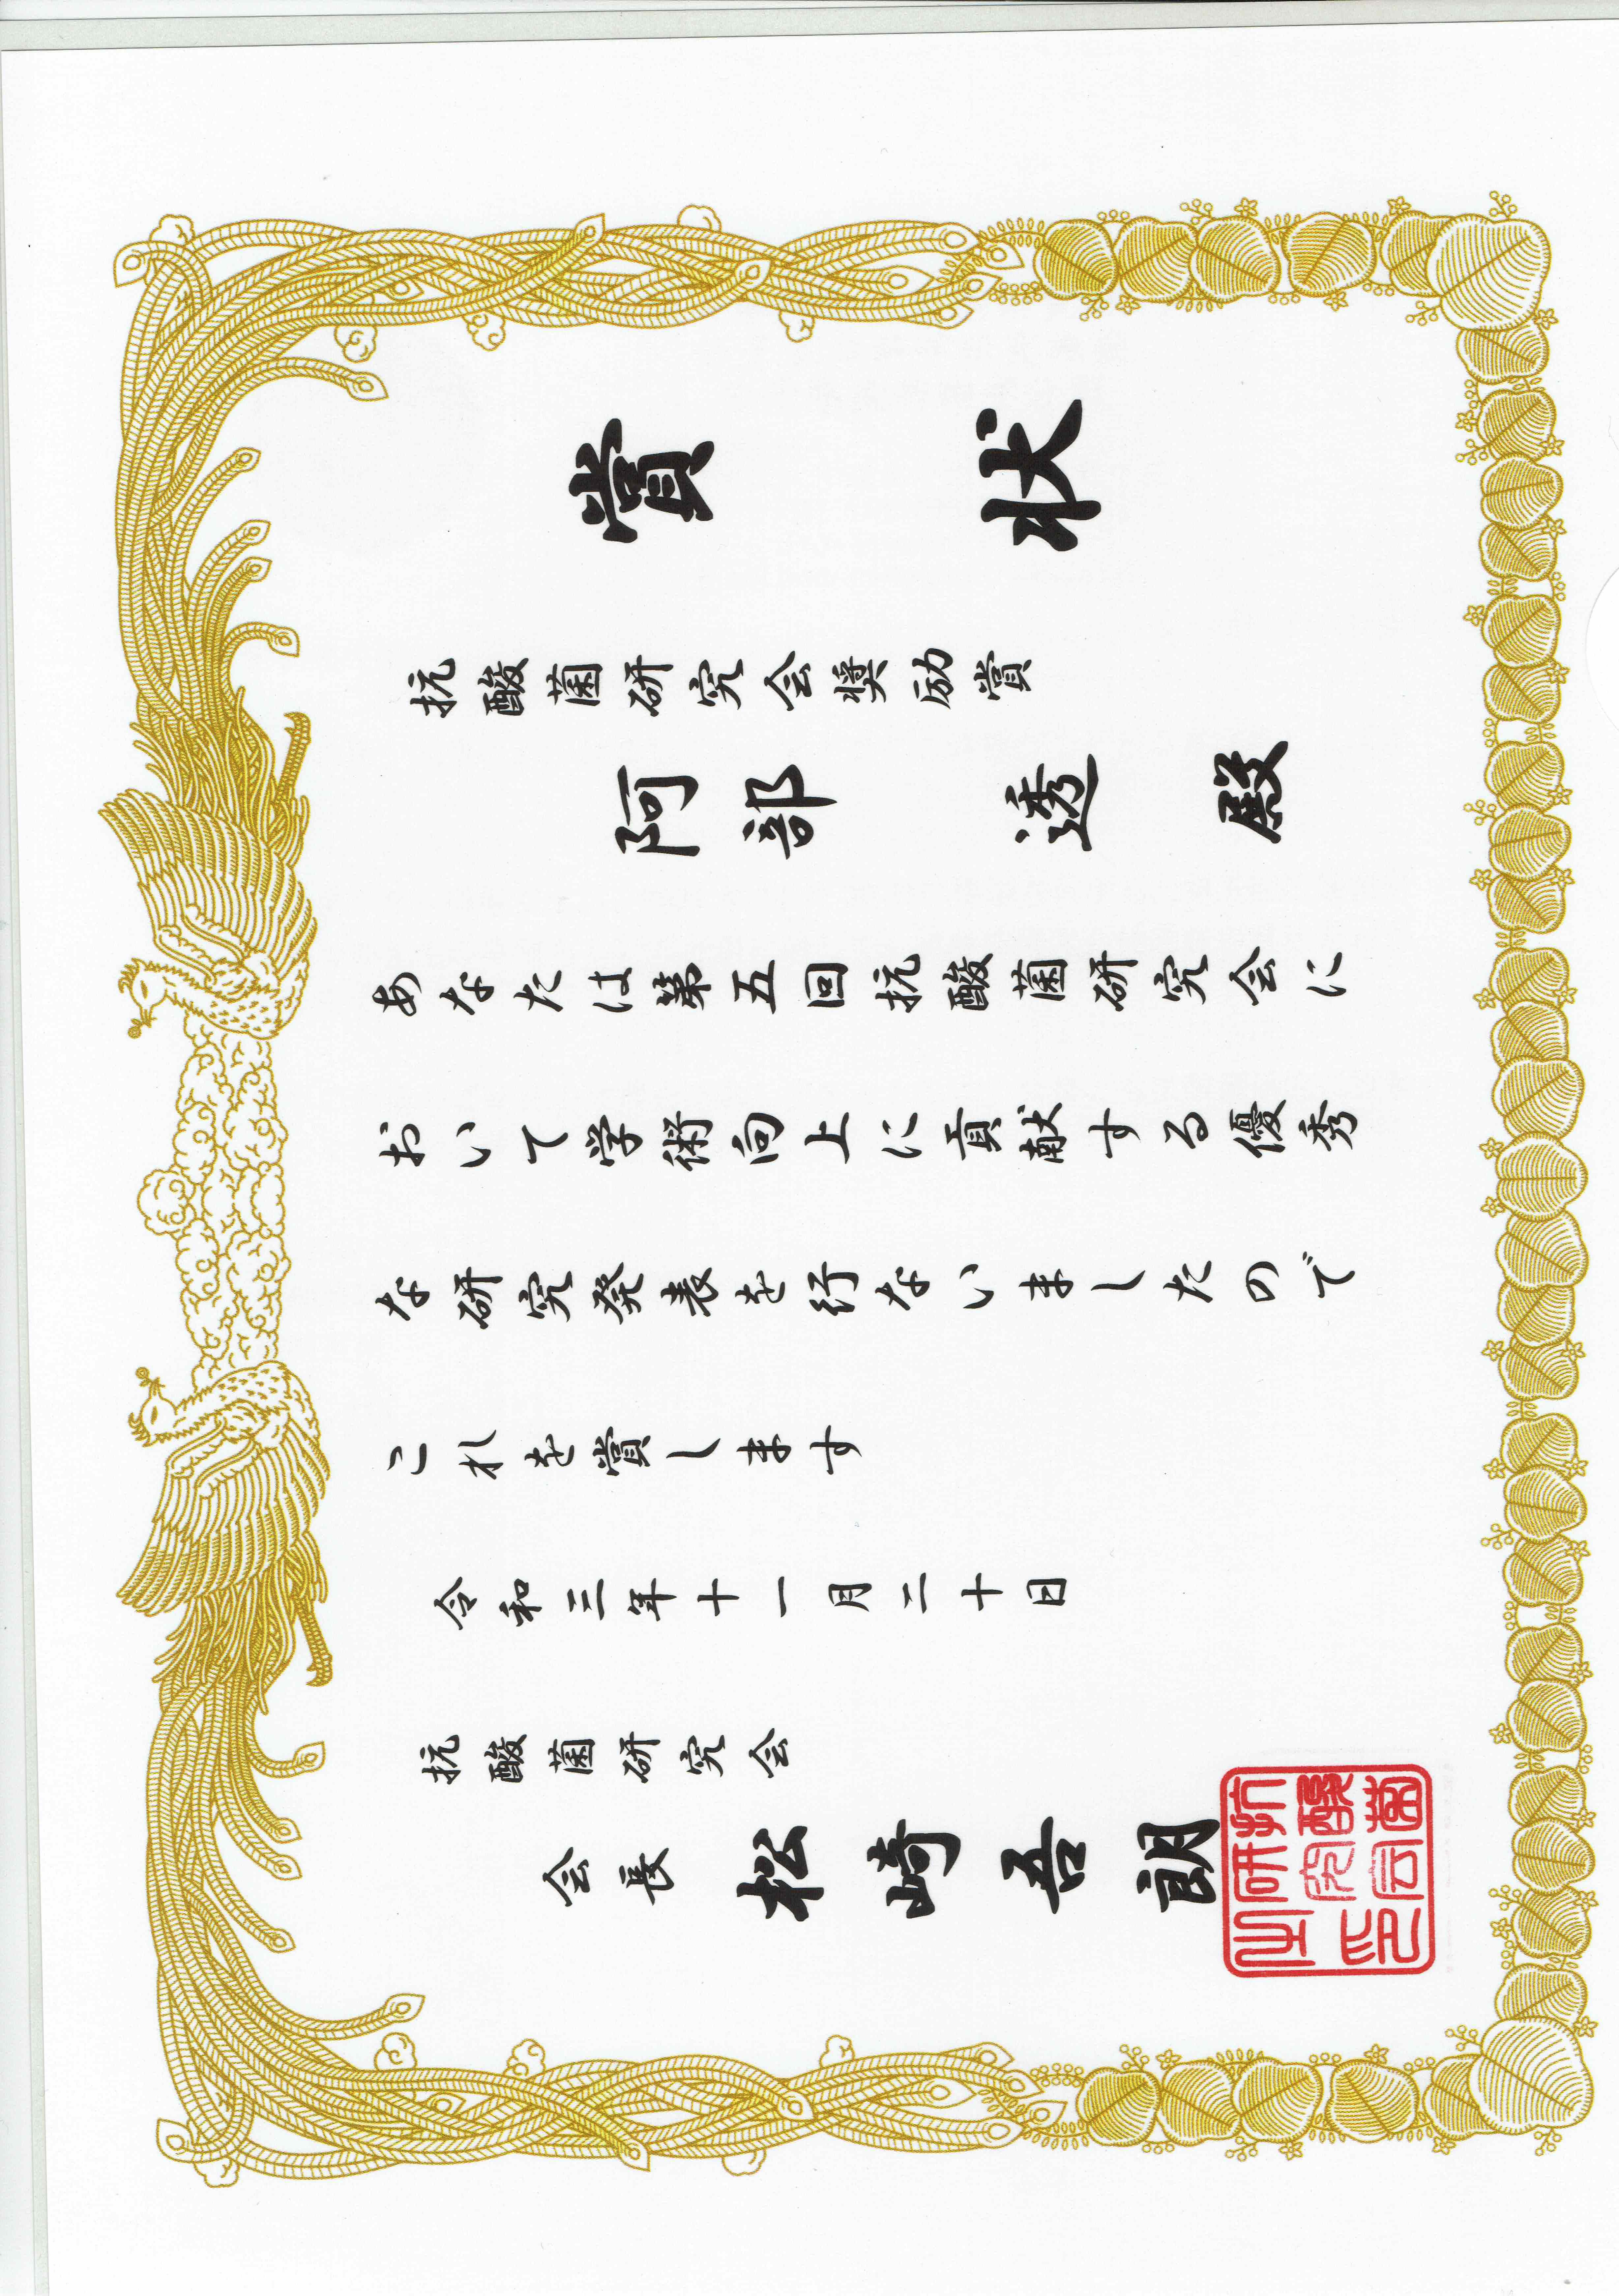 賞状
抗酸菌研究会奨励賞
阿部 透 殿
あなたは第五回抗酸菌研究会に
おいて学術向上に貢献する優秀
な研究発表を行ないましたので
これを賞します
令和三年十一月二十日
抗酸菌研究会
会長 松崎吾朗
抗酸菌
研究会
之印